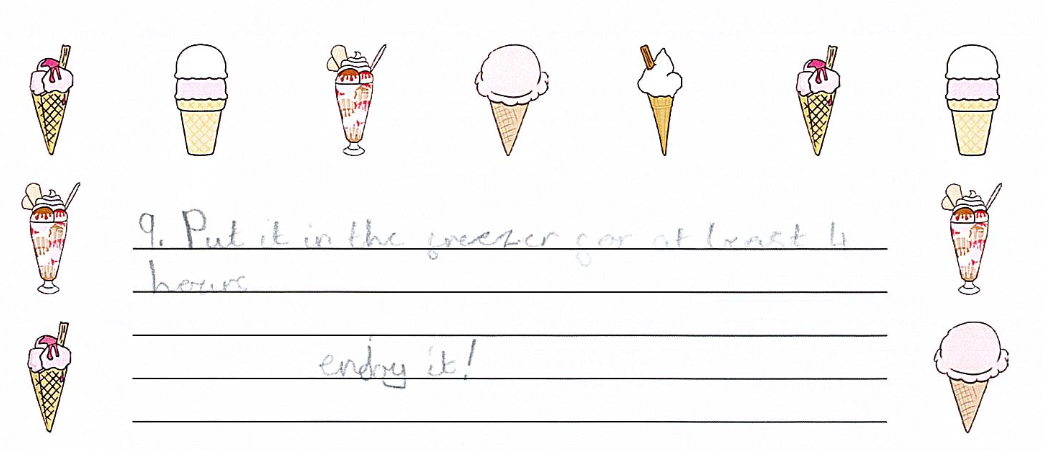 9. Put it in the freezer for at least 4
hours
enjoy it!